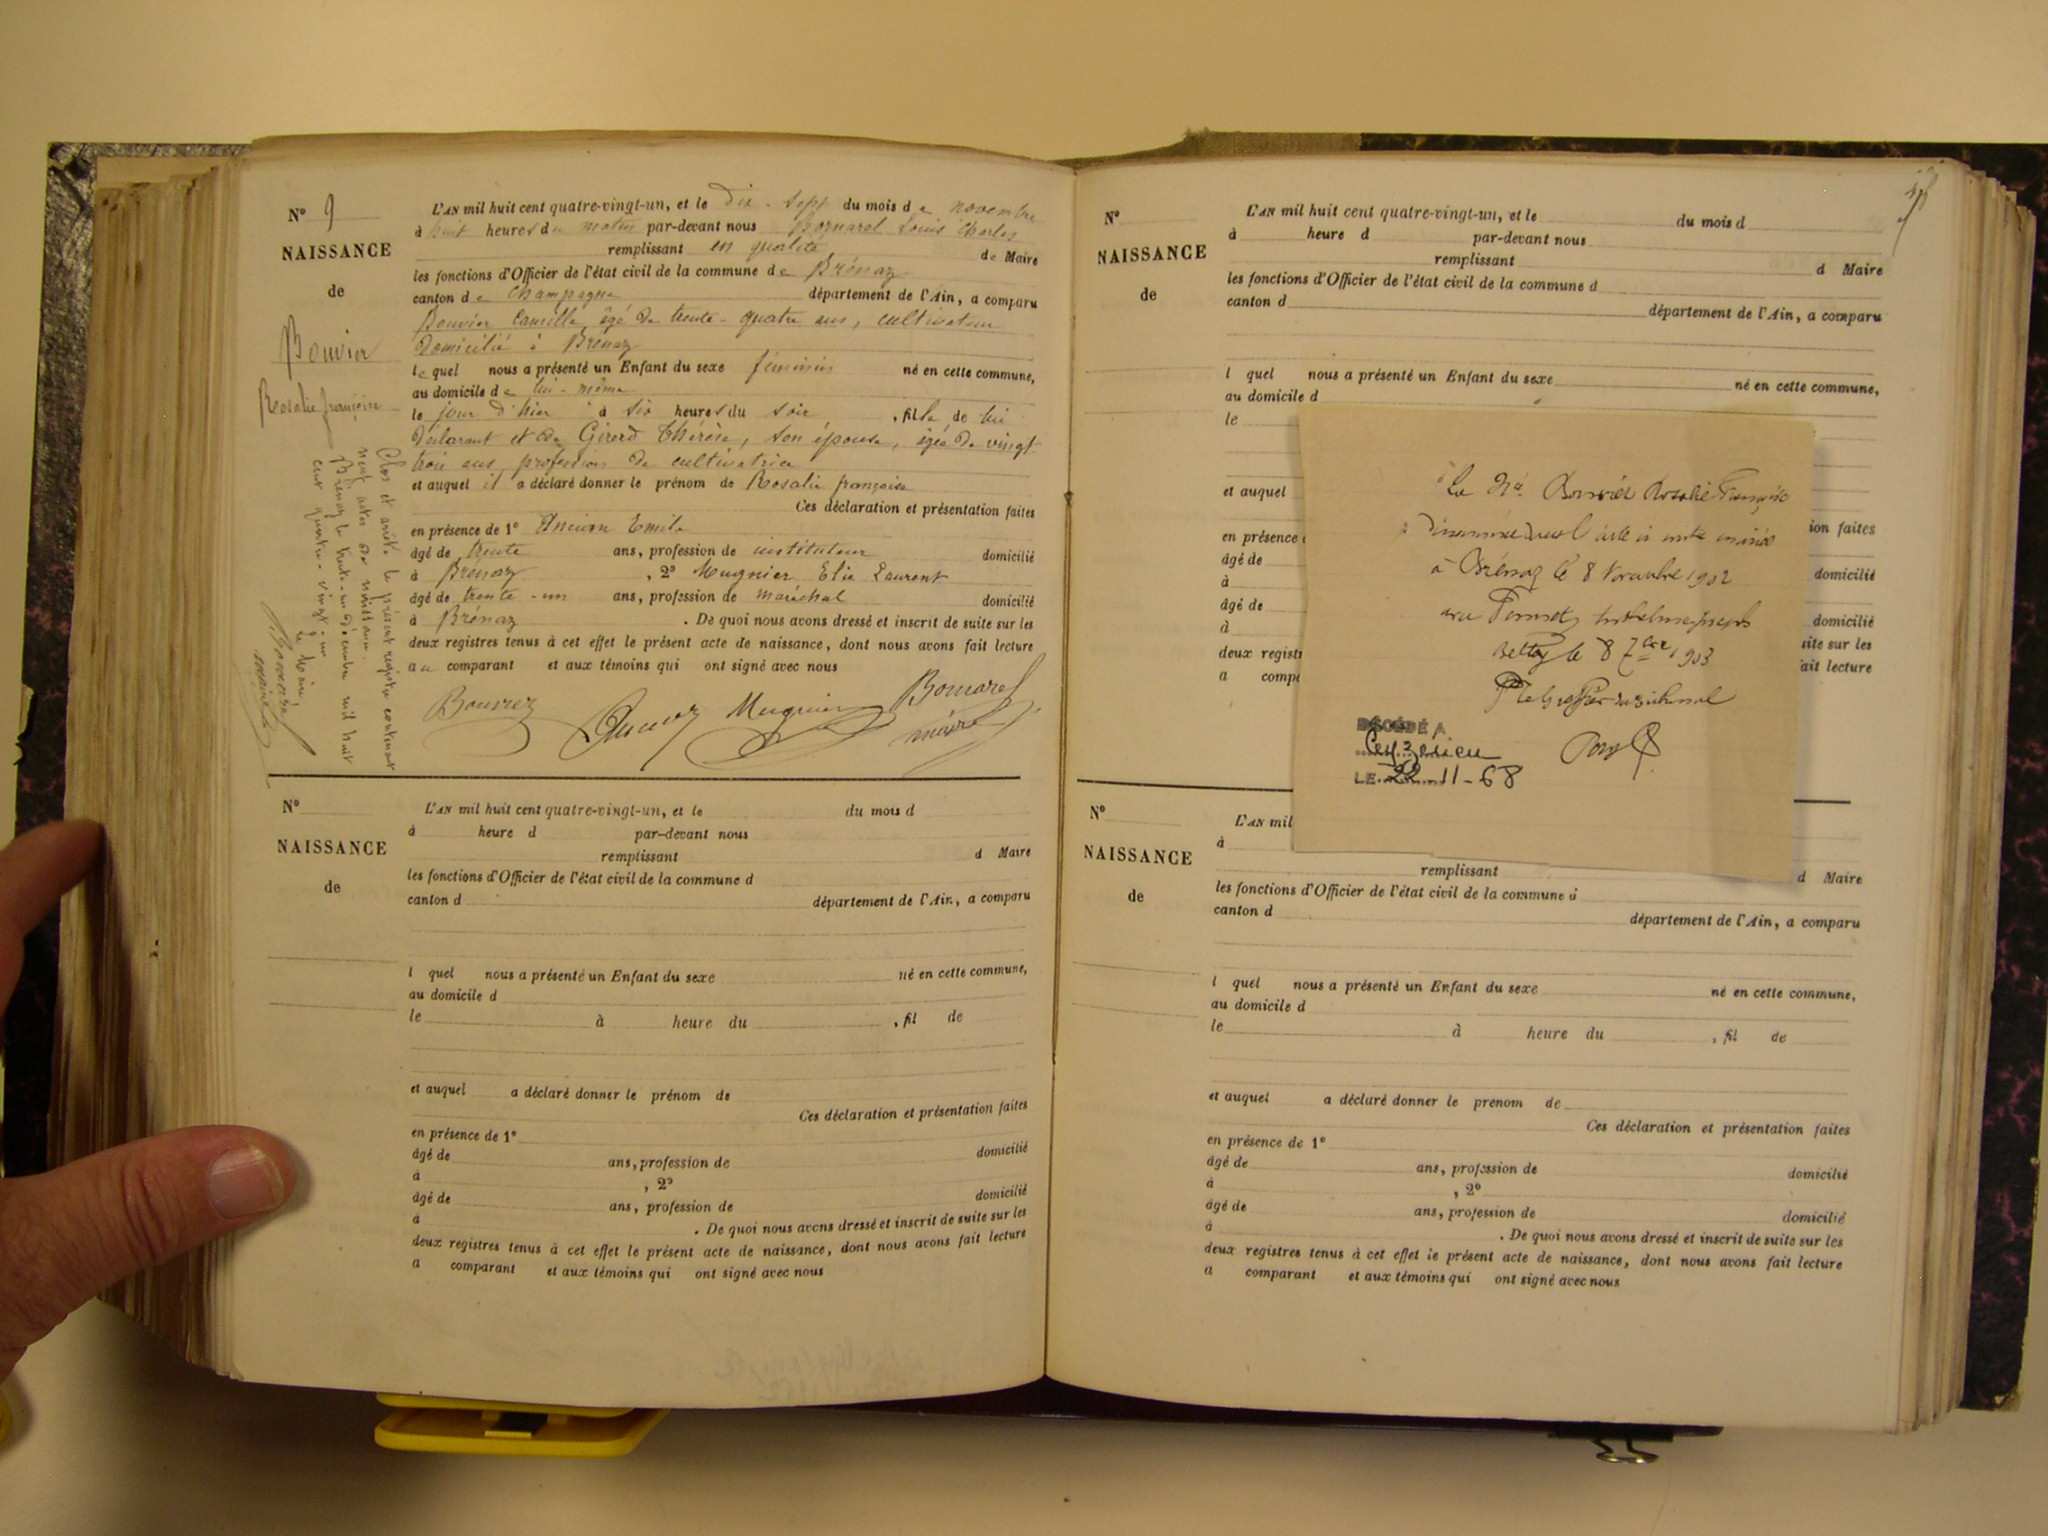 N° 9
NAISSANCE
de
Bouvier
Rosalie françoise
L'AN mil huit cent quatre-vingt-un, et le Dix-sept du mois de novembre
à huit heures du matin par-devant nous Bornarel Louis Charles
remplissant en qualité de Maire
les fonctions d'Officier de l'état civil de la commune de Brénaz
canton de Champagne département de l'Ain, a comparu
Bouvier Camille, âgé de trente-quatre ans, cultivateur
domicilié à Brenaz
lequel nous a présenté un Enfant du sexe féminin né en cette commune,
au domicile de lui-même
le jour d'hier à six heures du soir, fille de lui
déclarant et de Girerd Thérèse, son épouse, âgée de vingt
trois ans, profession de cultivatrice
et auquel il a déclaré donner le prénom de Rosalie françoise
Ces déclaration et présentation faites
en présence de 1° Ancian Emile
âgé de trente ans, profession de instituteur domicilié
à Brénaz, 2° Mugnier Elie Laurent
âgé de trente-un ans, profession de maréchal domicilié
à Brénaz. De quoi nous avons dressé et inscrit de suite sur les
deux registres tenus à cet effet le présent acte de naissance, dont nous avons fait lecture
au comparant et aux témoins qui ont signé avec nous
Mugnier Bornarel
maire
Clos et arrêté le présent registre contenant
neuf actes de naissance.
Brénaz le trente-un décembre mil huit
cent quatre-vingt-un
Le Maire,
N°
NAISSANCE
de
L'AN mil huit cent quatre-vingt-un, et le du mois d
à heure d par-devant nous
remplissant d Maire
les fonctions d'Officier de l'état civil de la commune d
canton d département de l'Ain, a comparu
l quel nous a présenté un Enfant du sexe né en cette commune,
au domicile d
le à heure du , fil de
et auquel a déclaré donner le prénom de
Ces déclaration et présentation faites
en présence de 1°
âgé de ans, profession de domicilié
à , 2°
âgé de ans, profession de domicilié
à . De quoi nous avons dressé et inscrit de suite sur les
deux registres tenus à cet effet le présent acte de naissance, dont nous avons fait lecture
a comparant et aux témoins qui ont signé avec nous
N°
NAISSANCE
de
L'AN mil huit cent quatre-vingt-un, et le du mois d
à heure d par-devant nous
remplissant d Maire
les fonctions d'Officier de l'état civil de la commune d
canton d département de l'Ain, a comparu
l quel nous a présenté un Enfant du sexe né en cette commune,
au domicile d
le
et auquel
ion faites
en présence
âgé de domicilié
à
âgé de domicilié
à site sur les
deux regist fait lecture
a comp
La Née Bouvier Rosalie Françoise
Dénommée dans l'acte ci contre mariée
à Brénaz le 8 Novembre 1902
avec
Belley le 8 7bre 1903
DÉCÉDÉ A
Ceyzerieu
LE 22-11-68
N°
NAISSANCE
de
L'AN mil
à
remplissant d Maire
les fonctions d'Officier de l'état civil de la commune d
canton d département de l'Ain, a comparu
l quel nous a présenté un Enfant du sexe né en cette commune,
au domicile d
le à heure du , fil de
et auquel a déclaré donner le prenom de
Ces déclaration et présentation faites
en présence de 1°
âgé de ans, profession de domicilié
à , 2°
âgé de ans, profession de domicilié
à . De quoi nous avons dressé et inscrit de suite sur les
deux registres tenus à cet effet le présent acte de naissance, dont nous avons fait lecture
a comparant et aux témoins qui ont signé avec nous